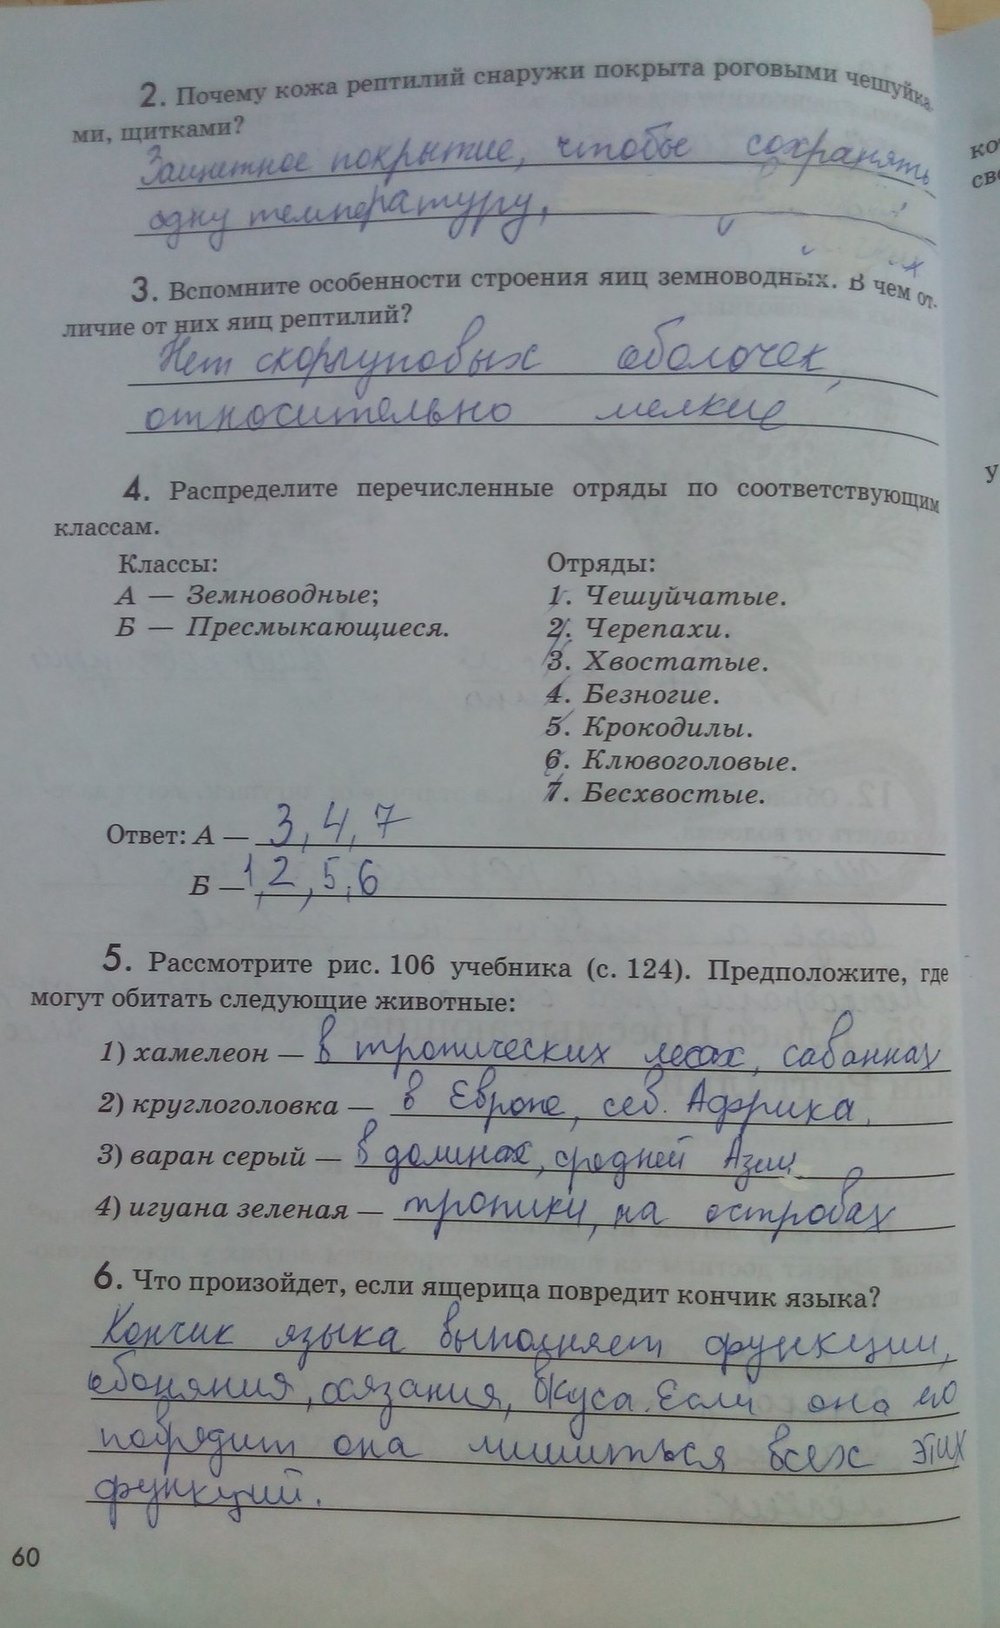 2. Почему кожа рептилий снаружи покрыта роговыми чешуйка-
ми, щитками?
Защитное покрытие, чтобы сохранять
одну температуру,
3. Вспомните особенности строения яиц земноводных. В чем от-
личие от них яиц рептилий?
Нет скорлуповых оболочек,
относительно мелкие
4. Распределите перечисленные отряды по соответствующим
классам.
Классы:
А — Земноводные;
Б — Пресмыкающиеся.
Отряды:
1. Чешуйчатые.
2. Черепахи.
3. Хвостатые.
4. Безногие.
5. Крокодилы.
6. Клювоголовые.
7. Бесхвостые.
Ответ: А — 3, 4, 7
Б — 1, 2, 5, 6
5. Рассмотрите рис. 106 учебника (с. 124). Предположите, где
могут обитать следующие животные:
1) хамелеон — в тропических лесах, саваннах
2) круглоголовка — в Европе, сев. Африка.
3) варан серый — в долинах, средней Азии
4) игуана зеленая — тропики, на островах
6. Что произойдет, если ящерица повредит кончик языка?
Кончик языка выполняет функции,
обоняния, осязания, вкуса. Если она его
повредит она лишиться всех этих
функций.
60
ко
св
у